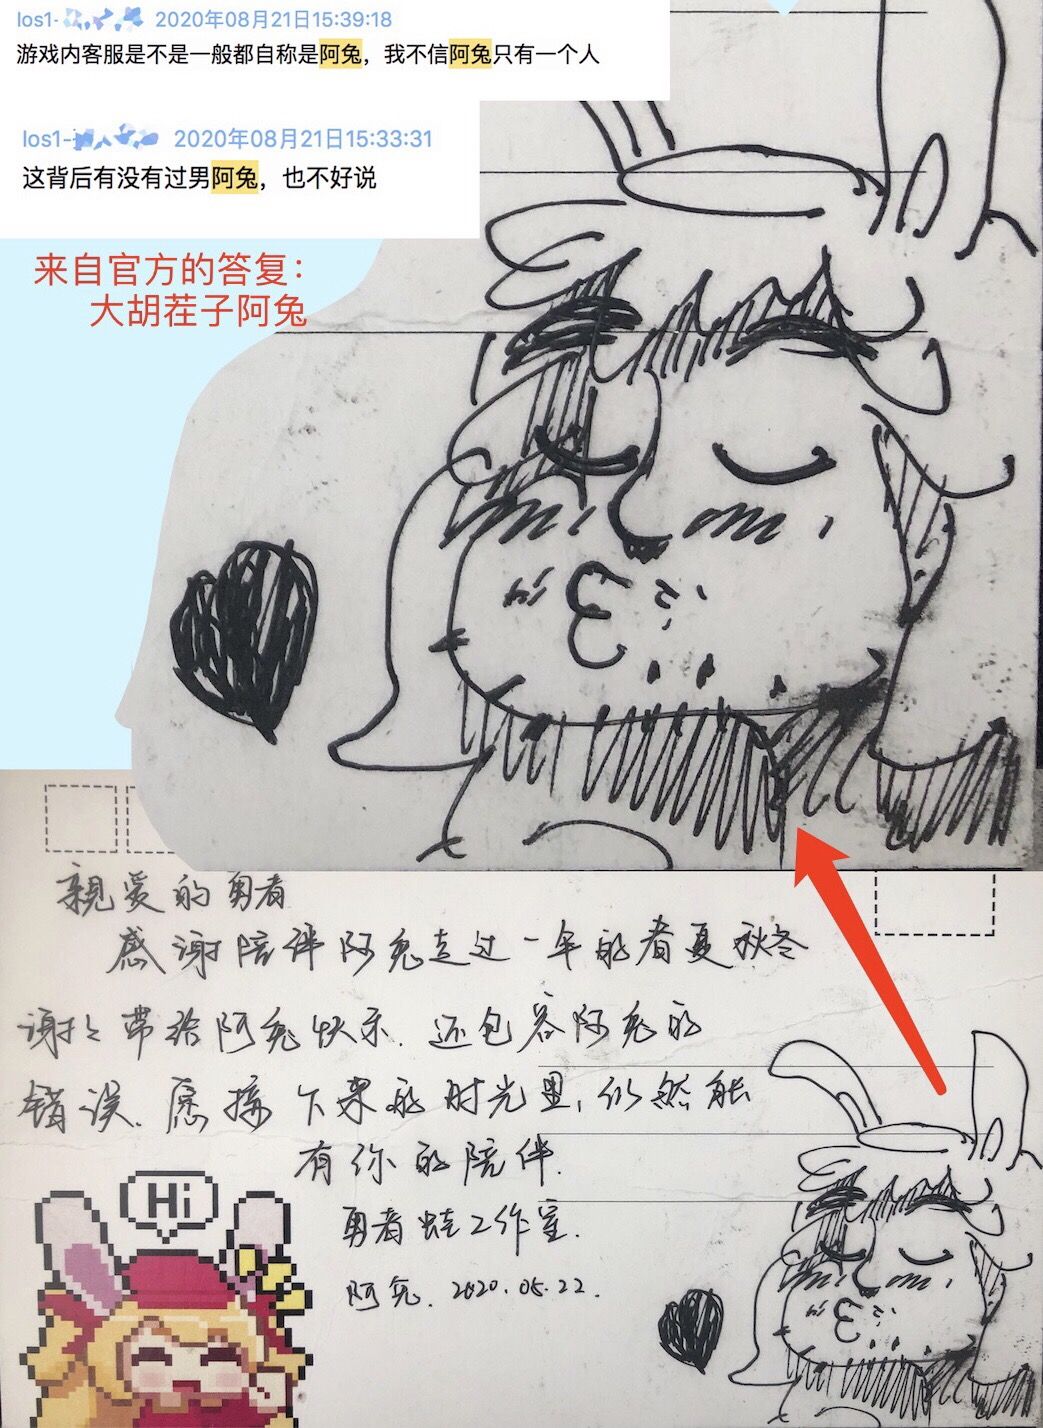 Ios1-
2020年08月21日15:39:18
游戏内客服是不是一般都自称是阿兔，我不信阿兔只有一个人
Ios1-
2020年08月21日15:33:31
这背后有没有过男阿兔，也不好说
来自官方的答复：
大胡茬子阿兔
親爱的勇者
感谢陪伴阿兔走过一年的春夏秋冬
谢谢带给阿兔快乐.还包容阿兔的
错误.愿接下来的时光里,仍然能
有你的陪伴.
勇者蛙工作室.
阿兔.2020.05.22.
Hi